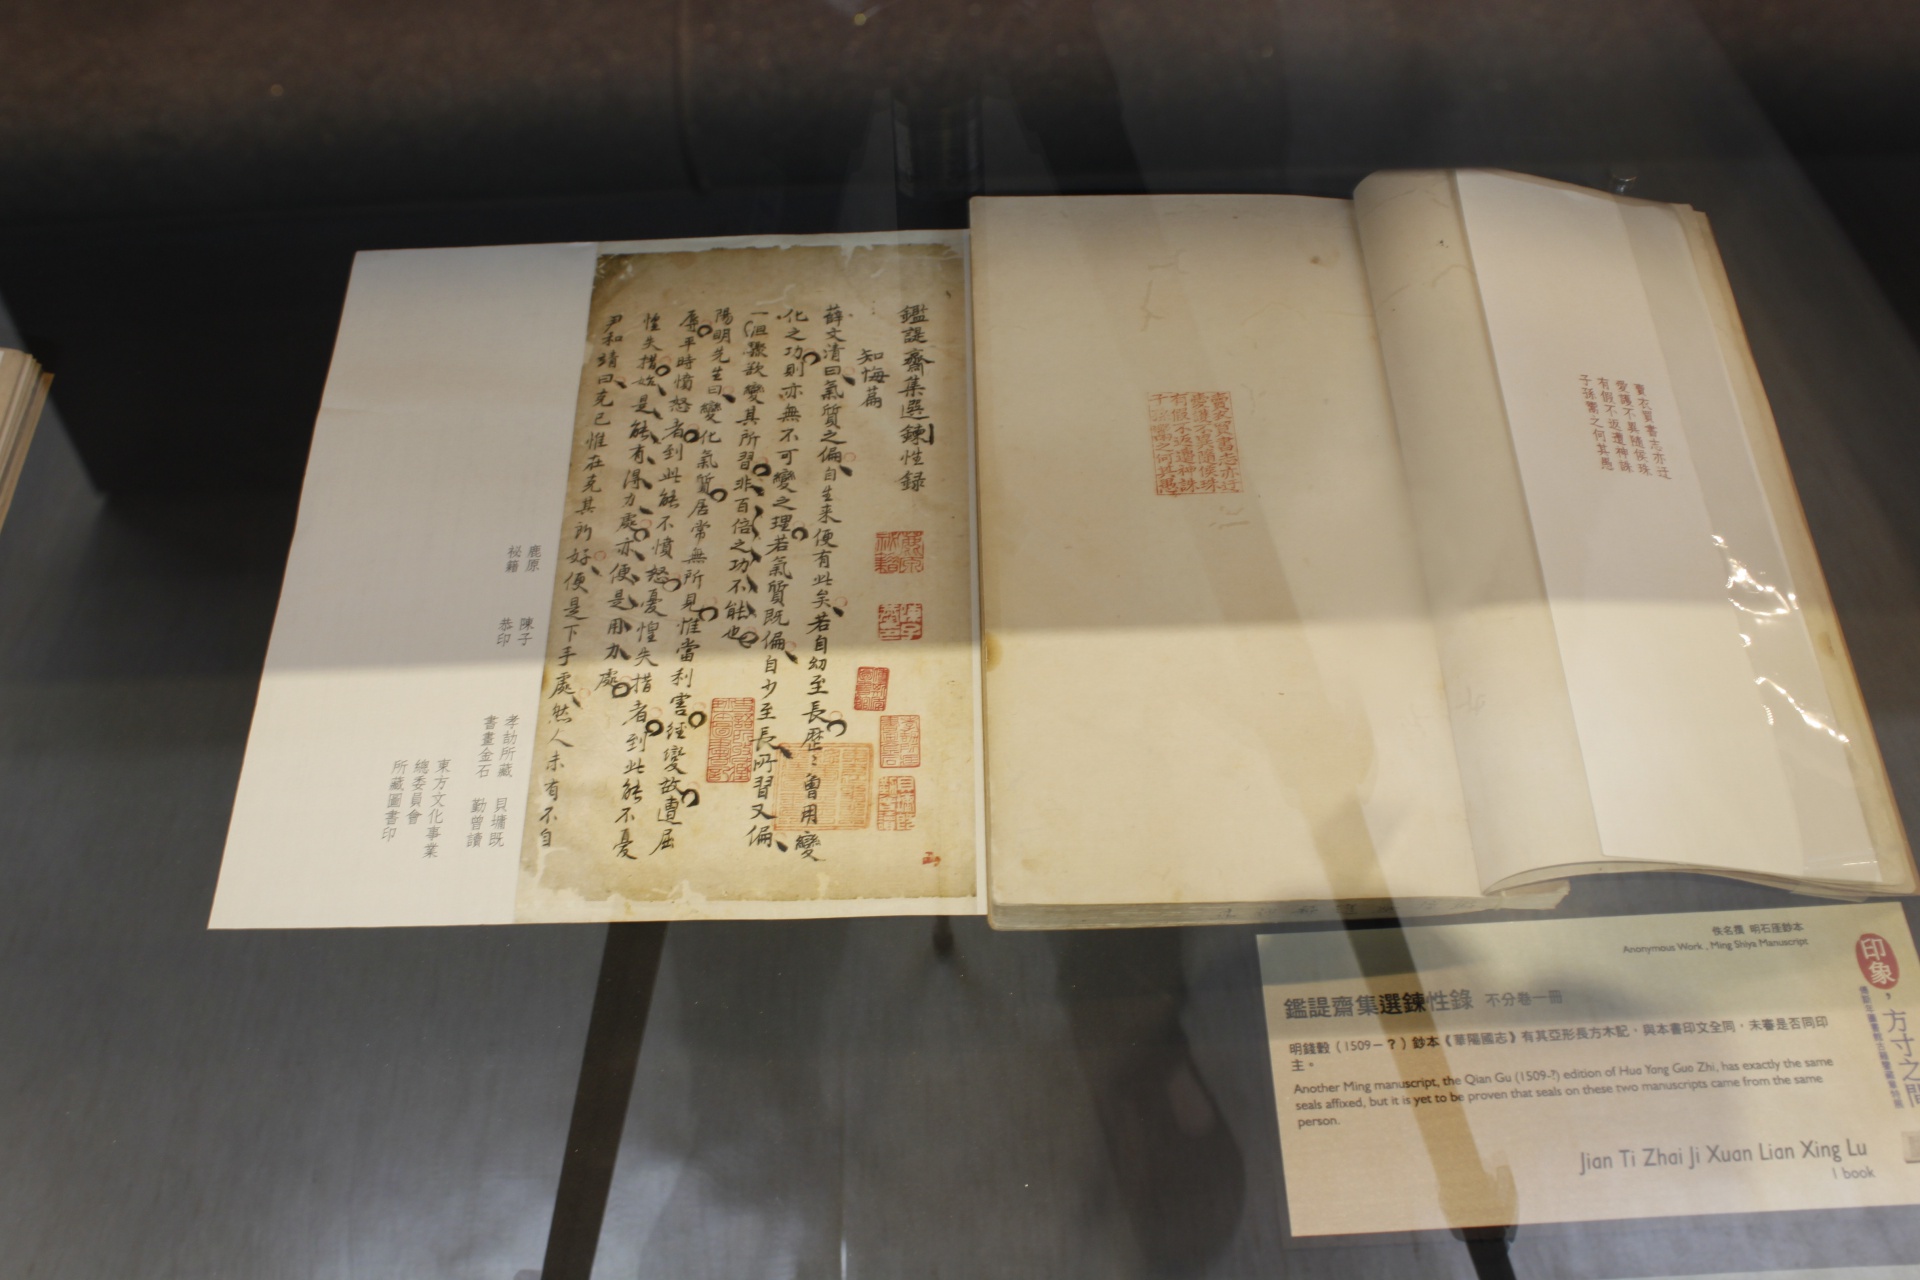 鑑諟齋集選鍊性録
知悔篇
薛文清曰氣質之偏自生來便有此矣若自幼至長歴〻曾用變
化之功則亦無不可變之理若氣質既偏自少至長所習又偏
一旦驟欲變其所習非百倍之功不能也
陽明先生曰變化氣質居常無所見惟當利害經變故遭屈
辱平時憤怒者到此能不憤怒憂惶失措者到此能不憂
惶失措始是能有得力處亦便是用力處
尹和靖曰克己惟在克其所好便是下手處然人未有不自
鹿原
秘籍
陳子
恭印
孝劼所藏
書畫金石
貝墉既
勤曾讀
東方文化事業
總委員會
所藏圖書印
賣衣買書志亦迂
愛護不異隨侯珠
有假不返遭神誅
子孫鬻之何其愚
賣衣買書志亦迂
愛護不異隨侯珠
有假不返遭神誅
子孫鬻之何其愚
佚名撰 明石厓鈔本
Anonymous Work , Ming Shiya Manuscript
鑑諟齋集選鍊性錄 不分卷一冊
明錢穀（1509－？）鈔本《華陽國志》有其亞形長方木記，與本書印文全同，未審是否同印
主。
Another Ming manuscript, the Qian Gu (1509-?) edition of Hua Yang Guo Zhi, has exactly the same
seals affixed, but it is yet to be proven that seals on these two manuscripts came from the same
person.
Jian Ti Zhai Ji Xuan Lian Xing Lu
1 book
印象，方寸之間